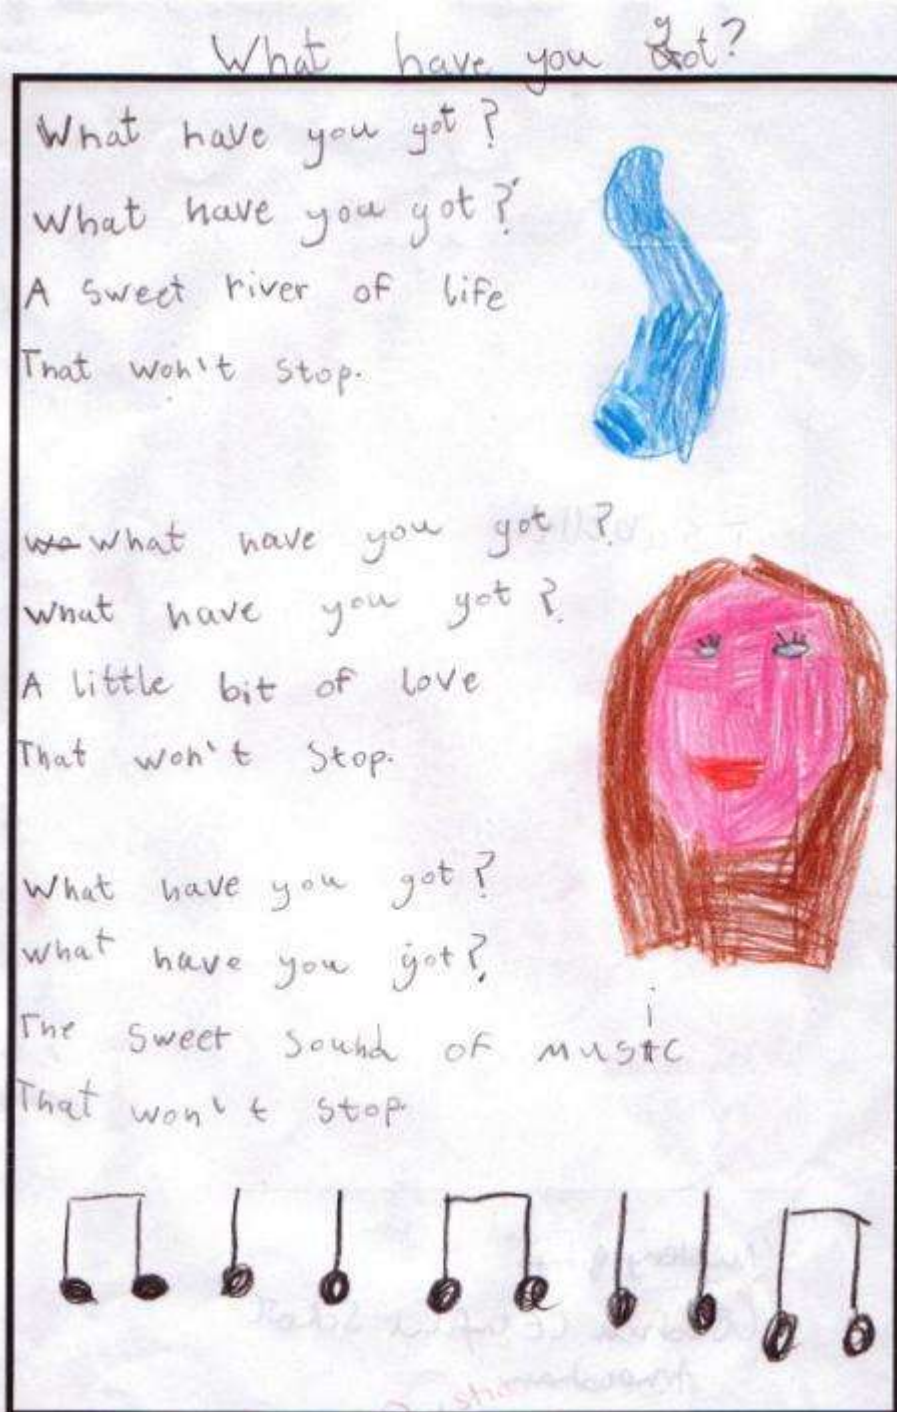 What have you got?
What have you got?
What have you got?
A sweet river of life
That won't stop.
what have you got?
what have you got?
A little bit of love
That won't stop.
What have you got?
what have you got?
The sweet sound of music
That won't stop.